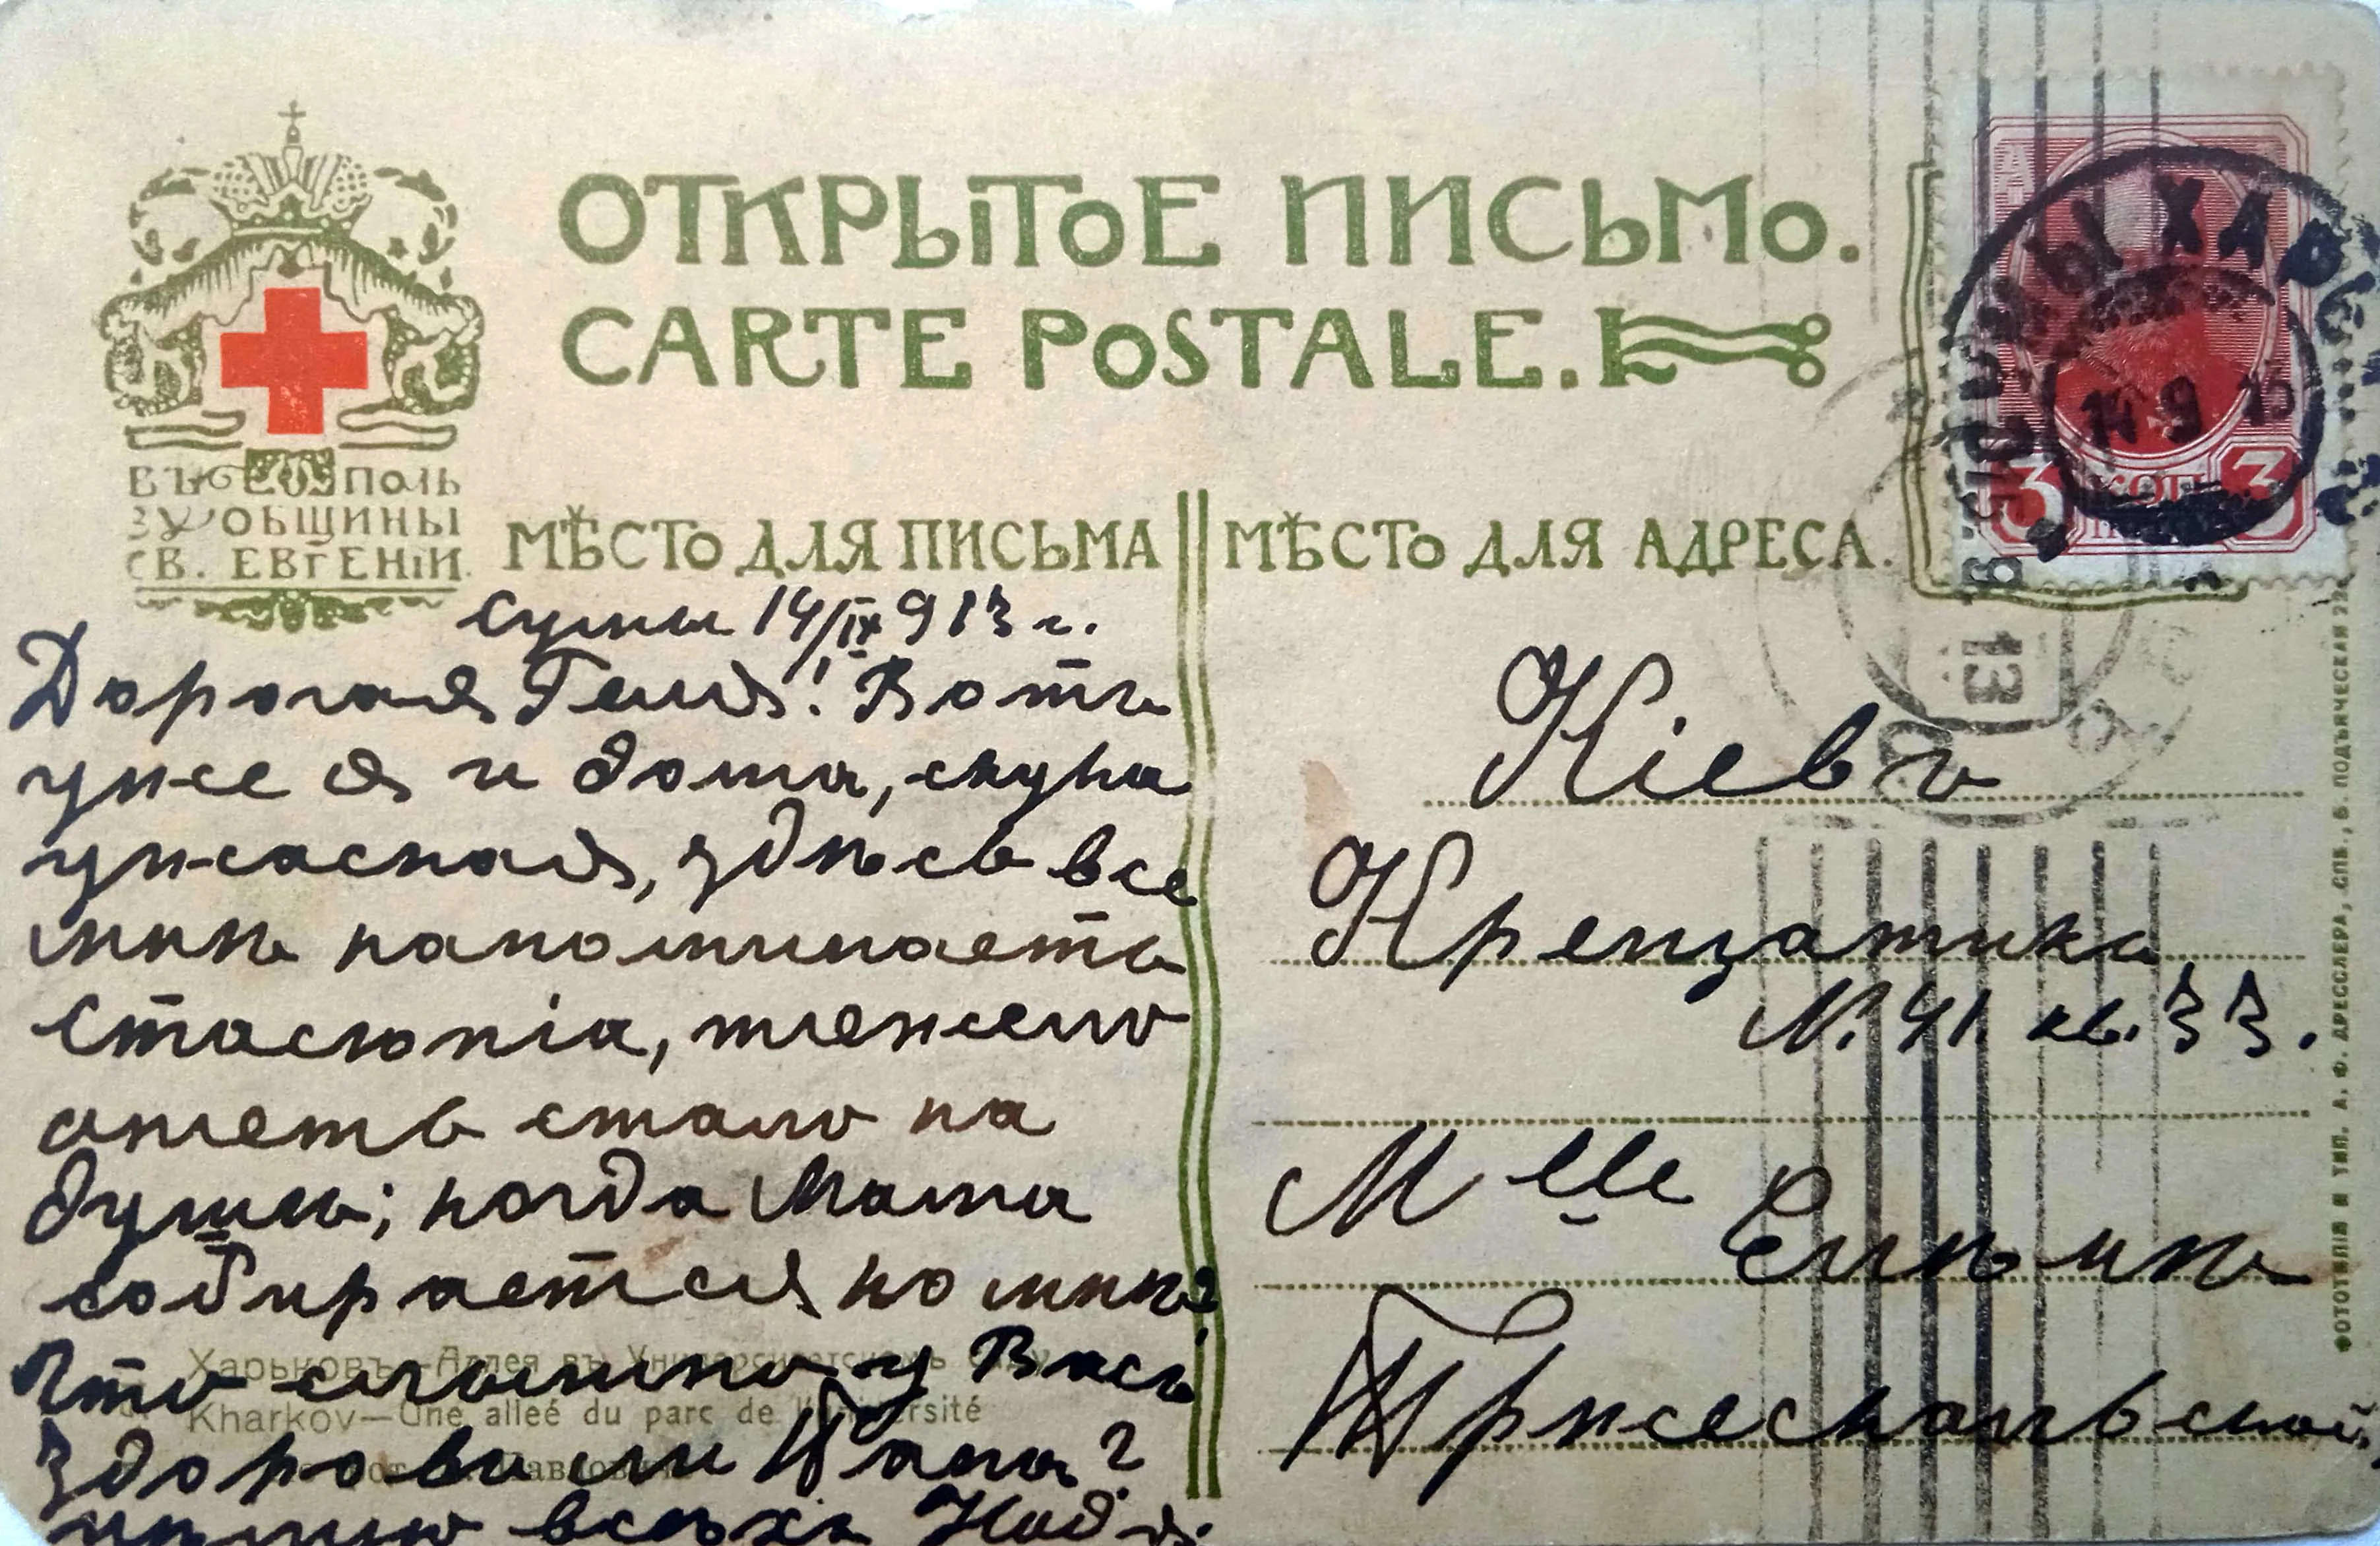 ОТКРЫТОЕ ПИСЬМО.
CARTE POSTALE.
ВЪ ПОЛЬ
ЗУ ОБЩИНЫ
СВ. ЕВГЕНІИ.
МѢСТО ДЛЯ ПИСЬМА
МѢСТО ДЛЯ АДРЕСА.
СУМЫ ХАРЬК
14 9 13
3 КОП 3
13
Сумы 14/IX 913 г.
Дорогая Геля! Вотъ
уже я и дома, скука
ужасная, здѣсь все
мнѣ напоминаетъ
Стасюнія, тяжело
опять стало на
душѣ; когда Мама
собирается ко мнѣ?
Что слышно у Васъ
здоровъ ли Папа?
цѣлую всѣхъ Надя.
Харьковъ.—Аллея въ Университетскомъ саду
Kharkov—Une alleé du parc de l'université
Кіевъ
Крещатикъ
N. 41. кв. 33.
Mlle
Еленѣ
Пржесманьской
ФОТОТИПІЯ И ТИП. А. Ф. ДРЕССЛЕРА, СПБ., Б. ПОДЪЯЧЕСКАЯ 22